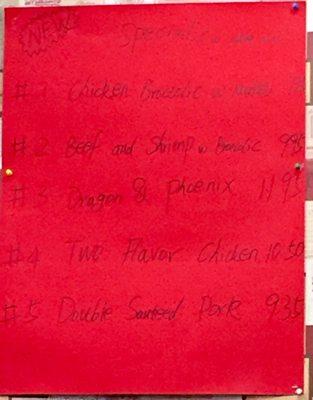 NEW
Specials
#1 Chicken Broccolic w
#2 Beef and Shrimp w Brocolic 995
#3 Dragon & phoenix 1195
#4 Two Flavor Chicken 10.50
#5 Double Sauteed Pork 935